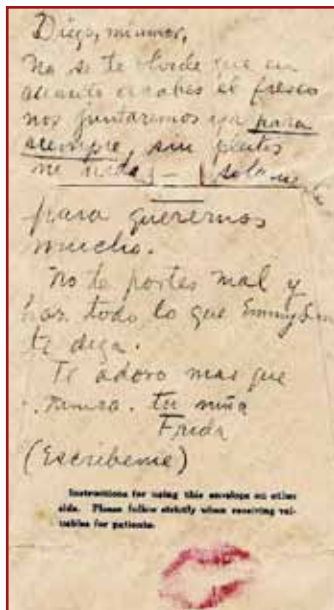 Diego, mi amor,
No se te olvide que en
cuanto acabes el fresco
nos juntaremos ya para
siempre, sin pleitos
ni nada, solamente
para querernos
mucho.
No te portes mal y
haz todo lo que Emmy Lou
te diga.
Te adoro mas que
nunca. Tu niña
Frida
(Escribeme)
Instructions for using this envelope on other
side. Please follow strictly when receiving val-
uables for patients.